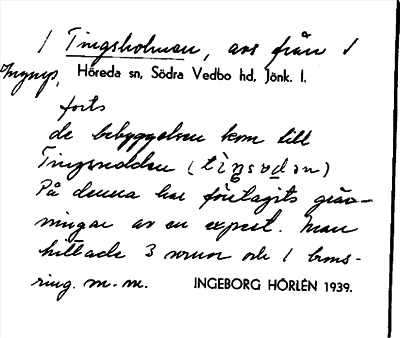 1 Tingsholmen, avs från 1
Höreda sn, Södra Vedbo hd, Jönk. l.
forts
de bebyggelsen kom till
Tingsnodden (
På denna har företagits gräv-
ningar av en expert. Man
hittade 3 urnor och 1 brons-
ring m.m. INGEBORG HÖRLÉN 1939.